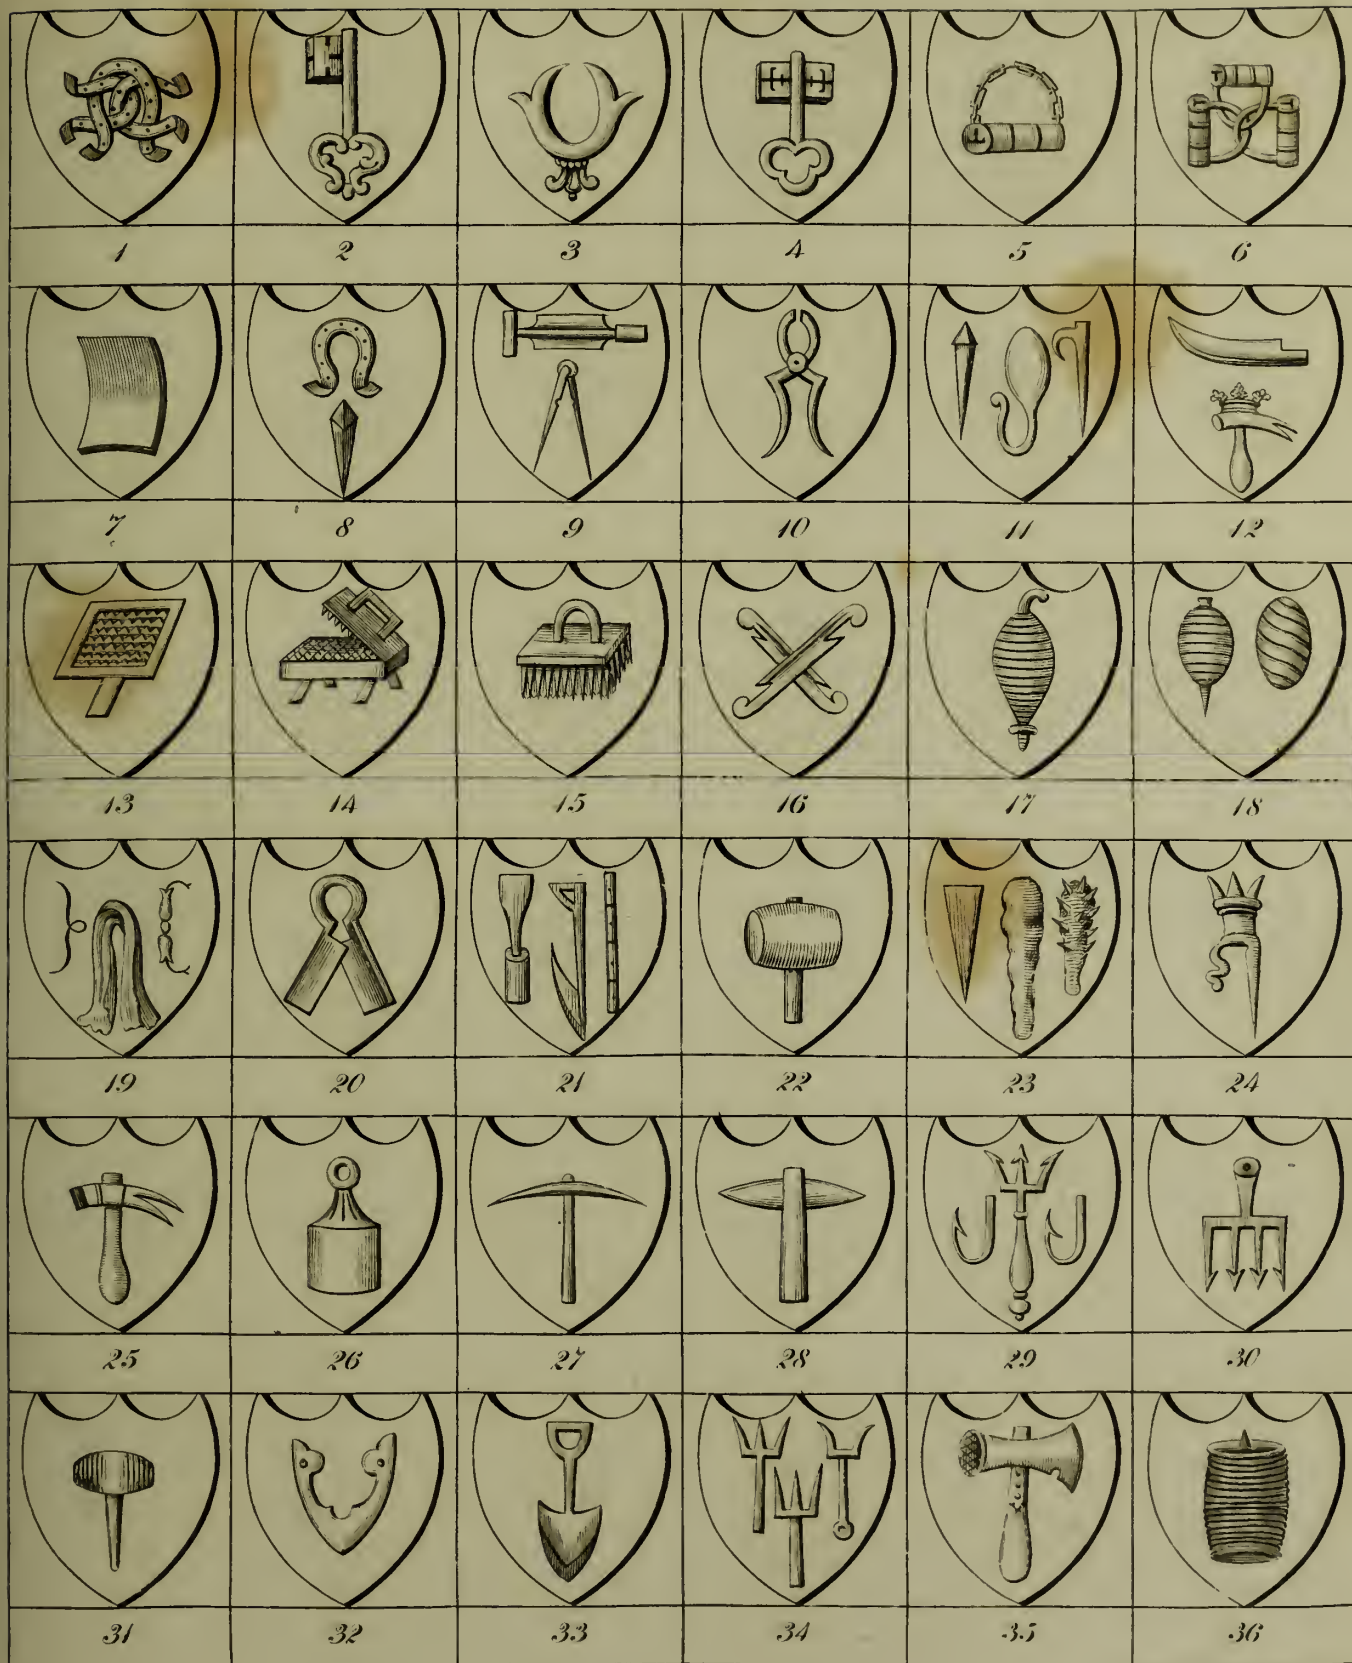 1 2 3 4 5 6
7 8 9 10 11 12
13 14 15 16 17 18
19 20 21 22 23 24
25 26 27 28 29 30
31 32 33 34 35 36